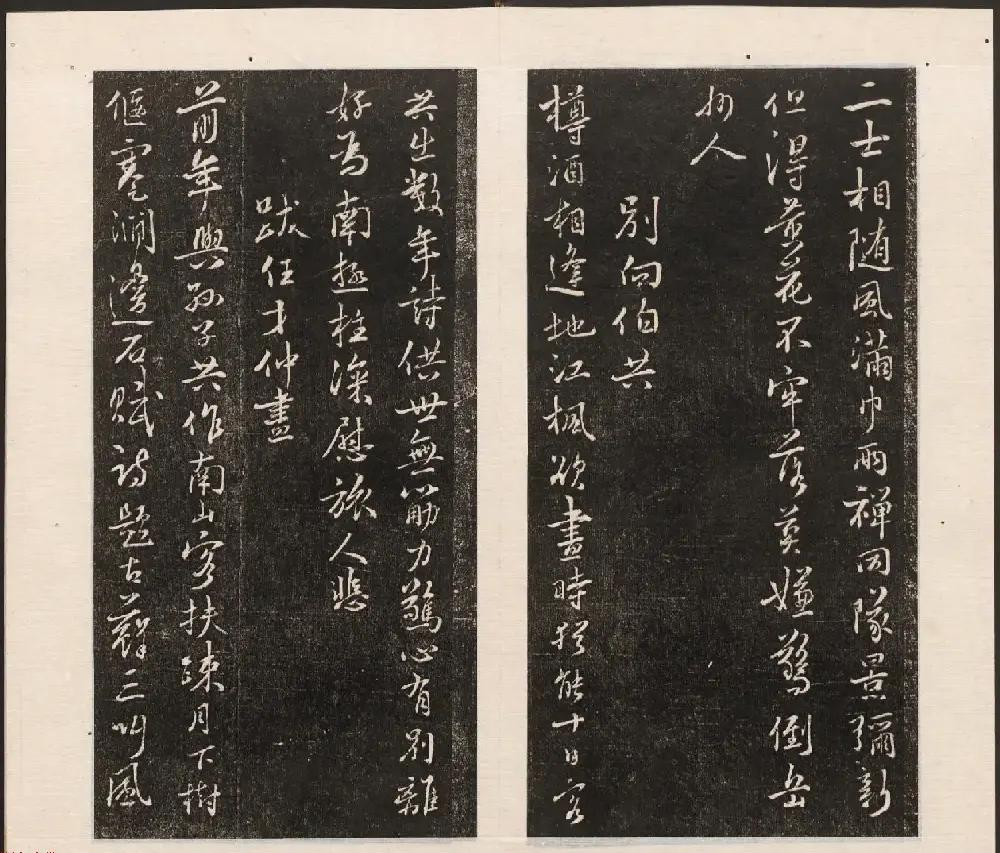 二士相随風滿巾兩禪同隊景彌新
但得黄花不牢落莫嫌驚倒岳
州人
別向伯共
樽酒相逢地江楓欲盡時猶能十日客
共出数年詩供世無筋力驚心有別離
好為南極柱深慰旅人悲
跋任才仲畫
前年與孫子共作南山客扶疎月下樹
偃蹇澗邊石賦詩題古蘚三叫風